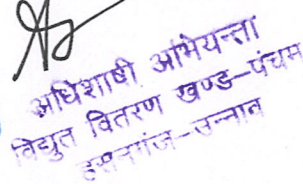 अधिशाषी अभियन्ता
विद्युत वितरण खण्ड–पंचम
हसनगंज–उन्नाव